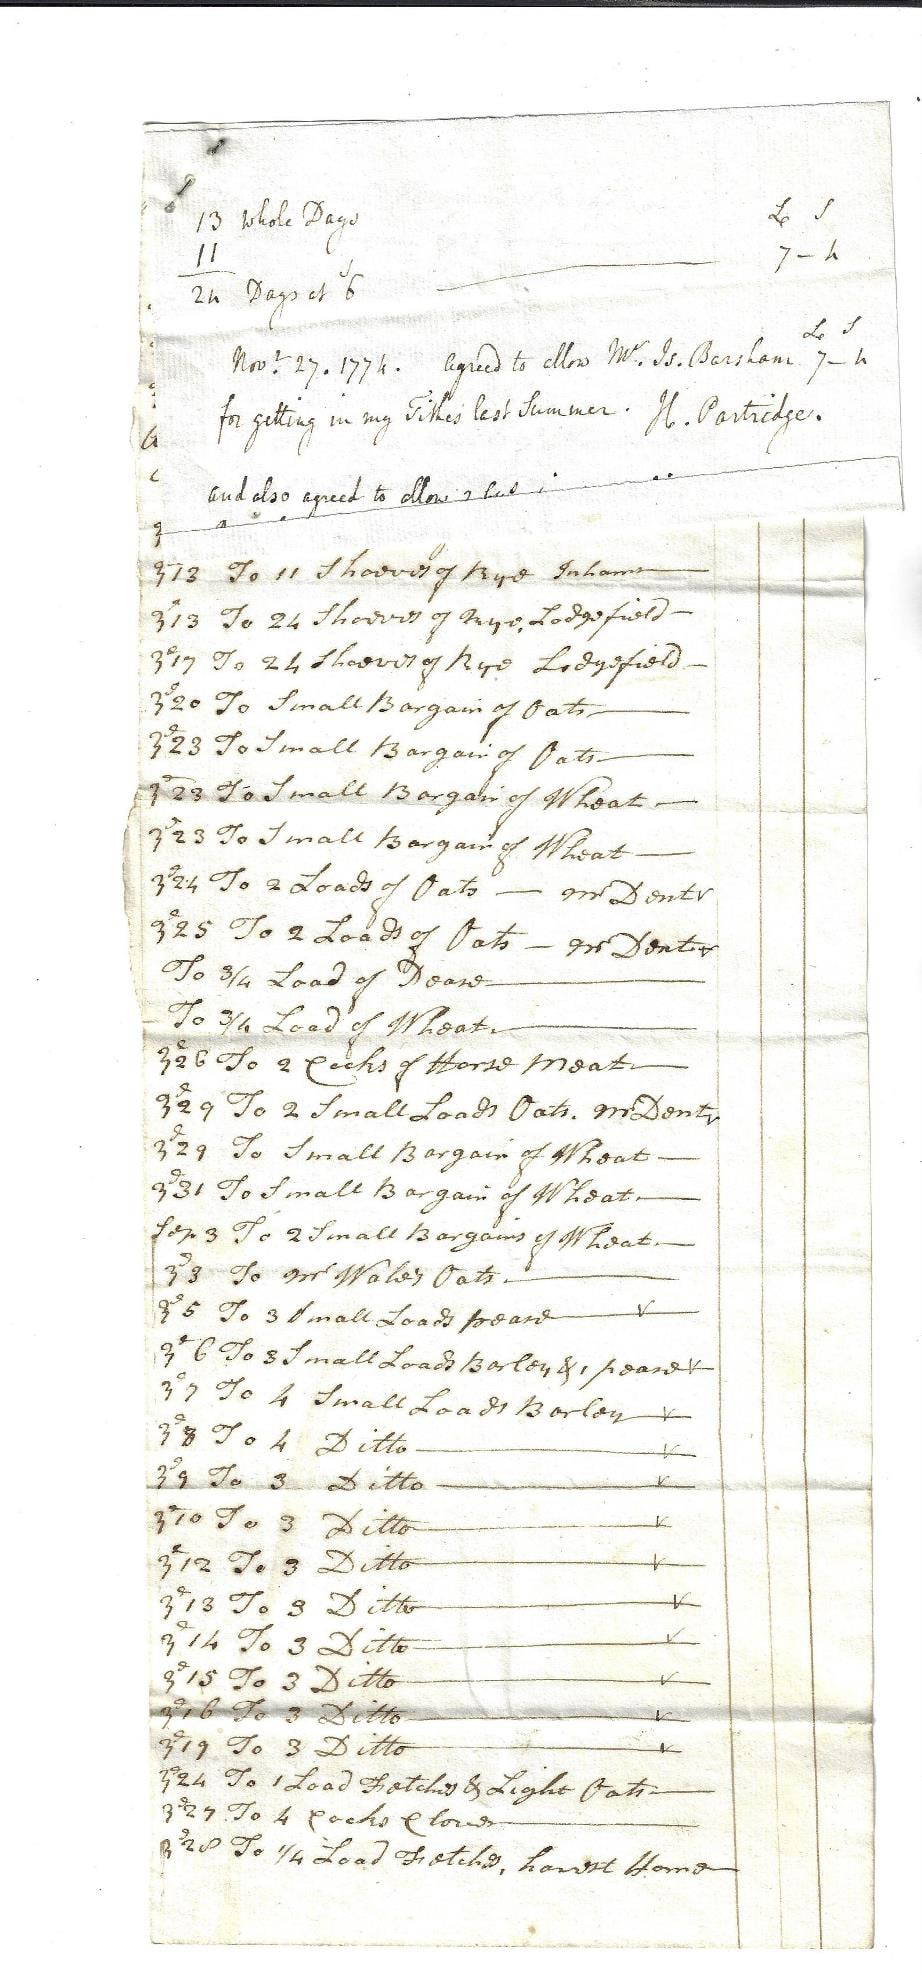 13 Whole Days £ S
11 7 – 4
24 Days at 6s
Novr. 27. 1774. agreed to allow Mr. Is. Barsham £7 – 4S
for getting in my Tithes last Summer. H. Partridge.
and also agreed to allow
do 13 To 11 Sheeves of Rye Inhams
do 13 To 24 Sheeves of Rye, Lodgefield
do 17 To 24 Sheeves of Rye Lodgefield
do 20 To Small Bargain of Oats
do 23 To Small Bargain of Oats
do 23 To Small Bargain of Wheat
do 23 To Small Bargain of Wheat
do 24 To 2 Loads of Oats — Mr Dent v
do 25 To 2 Loads of Oats — Mr Dent v
To 3/4 Load of Pease
To 3/4 Load of Wheat
do 26 To 2 Cocks of Horse Meat
do 29 To 2 Small Loads Oats. Mr Dent v
do 29 To Small Bargain of Wheat
do 31 To Small Bargain of Wheat
Sep 3 To 2 Small Bargains of Wheat
do 3 To Mr Wales Oats
do 5 To 3 Small Loads pease v
do 6 To 3 Small Loads Barley & 1 pease v
do 7 To 4 Small Loads Barley v
do 8 To 4 Ditto v
do 9 To 3 Ditto v
do 10 To 3 Ditto v
do 12 To 3 Ditto v
do 13 To 3 Ditto v
do 14 To 3 Ditto v
do 15 To 3 Ditto v
do 16 To 3 Ditto v
do 19 To 3 Ditto v
do 24 To 1 Load Fetches & Light Oats
do 27 To 4 Cocks Clover
do 28 To 1/4 Load Fetches, harvest Home